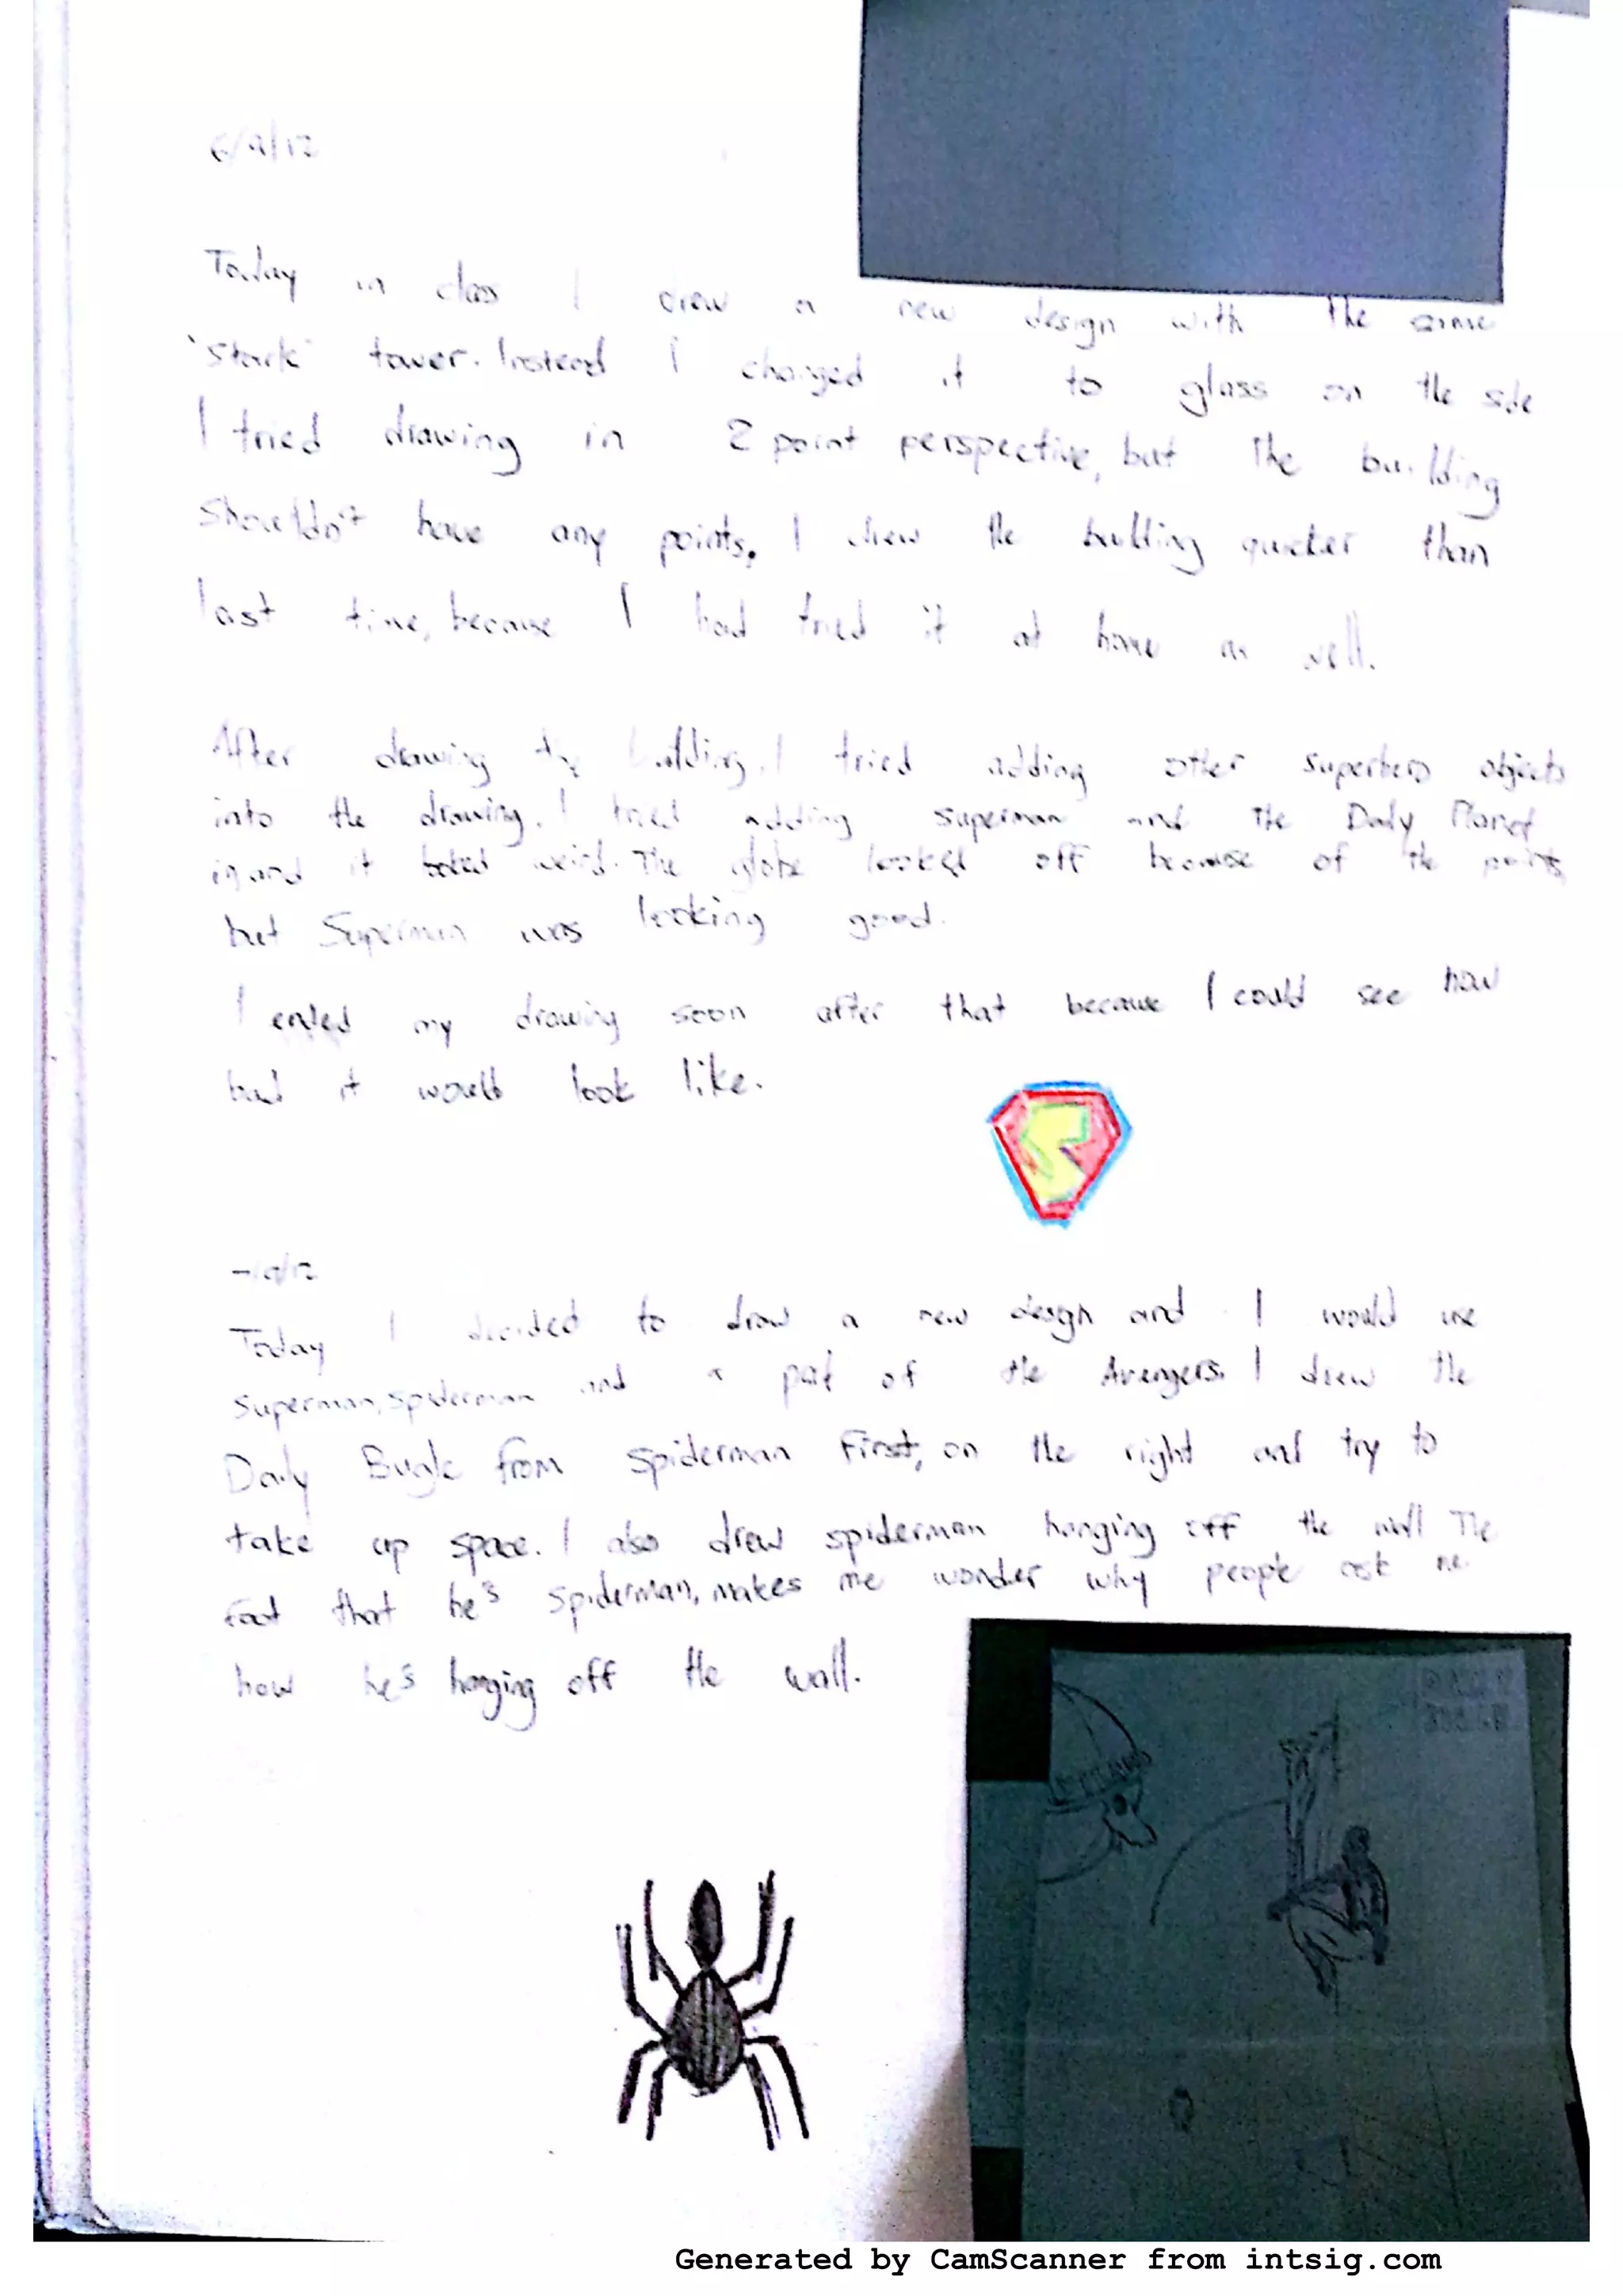 6/9/12
Today in class I drew a new design with the same
'Stark' tower. Instead I changed it to glass on the side
I tried drawing in 2 point perspective, but the building
Shouldn't have any points. I drew the building quicker than
last time, because I had tried it at home as well.
After drawing the building, I tried adding other superhero objects
into the drawing. I tried adding superman and The Daily Planet
in and it looked weird. The globe looked off because of the points,
but Superman was looking good.
I ended my drawing soon after that because I could see how
bad it would look like.
S
Today I decided to draw a new design and I would use
Superman, spiderman and a part of the Avengers. I drew the
Daily Bugle from spiderman First, on the right and try to
take up space. I also drew spiderman hanging off the wall The
fact that he's spiderman, makes me wonder why people ask me
how he's hanging off the wall.
DAILY
BUGLE
Generated by CamScanner from intsig.com